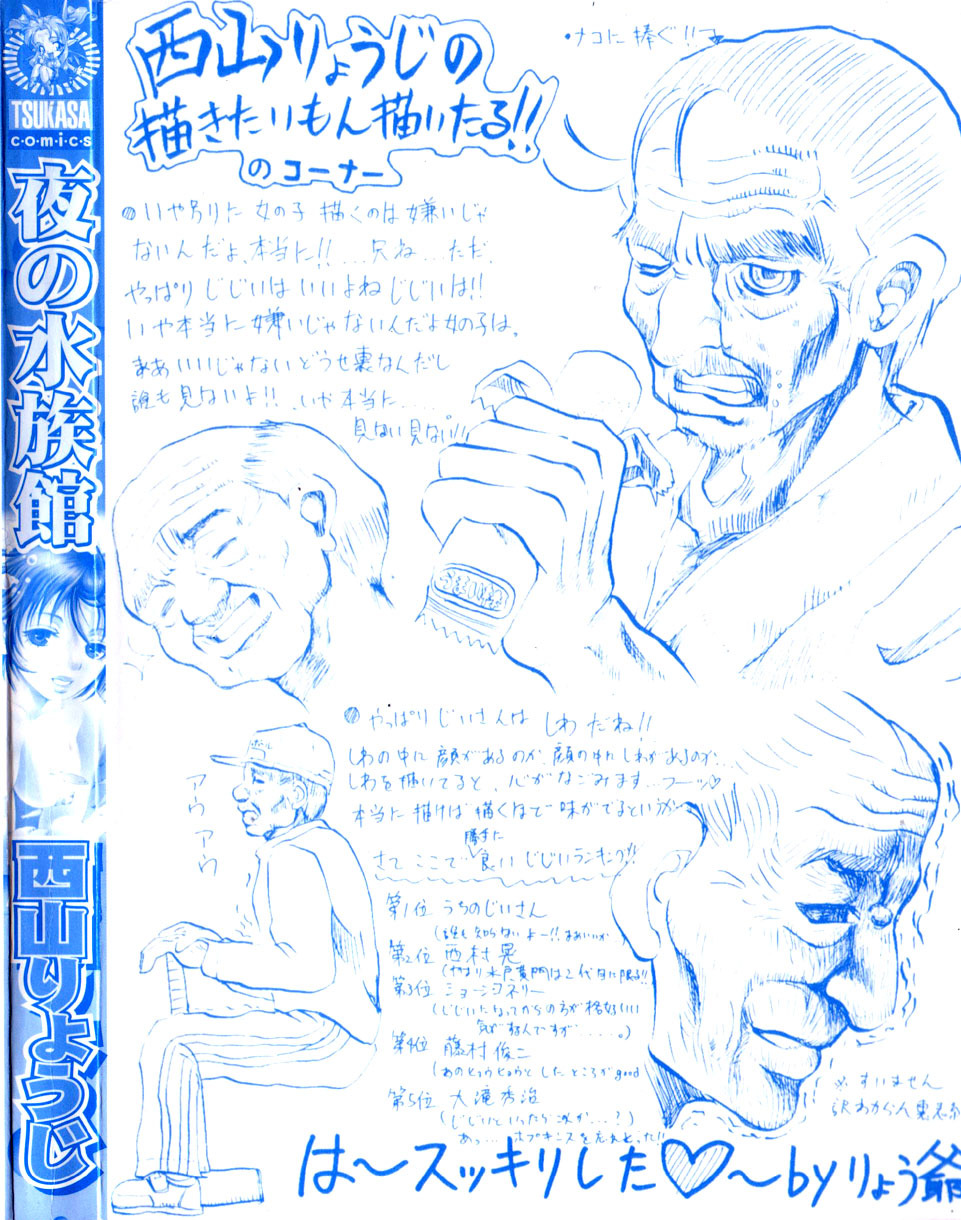 TSUKASA
comics
夜の水族館
西山りょうじ
西山りょうじの
描きたいもん描いたる!!
のコーナー
・ナコに捧ぐ!!
いや別に女の子描くのは嫌いじゃ
ないんだよ、本当に!!...只ね...ただ、
やっぱりじじいはいいよねじじいは!!
いや本当に嫌いじゃないんだよ女の子は。
まあいいじゃないどうせ裏なんだし
誰も見ないよ!!、いや本当に.....
見ない見ない!!
やっぱりじいさんはしわだね!!
しわの中に顔があるのか、顔の中にしわがあるのか...
しわを描いてると、心がなごみます...フーッ♡
本当に描けば描くほど味がでるというか
さてここで勝手に良いじじいランキング!!
アウアウ
第1位 うちのじいさん
(誰も知らないよー!!まあいいか
第2位 西村晃
(やはり水戸黄門は2代目に限る!!
第3位 ショーンコネリー
(じじいになってからの方が格好いい
気がするんですが.....。)
第4位 藤村俊二
(あのヒョウヒョウとしたところがgood
第5位 大滝秀治
(じじいといったらこの人が...?)
あっ...ホプキンスを忘れとった!!
※すいません
訳わからん裏表紙
は〜スッキリした♡〜byりょう爺